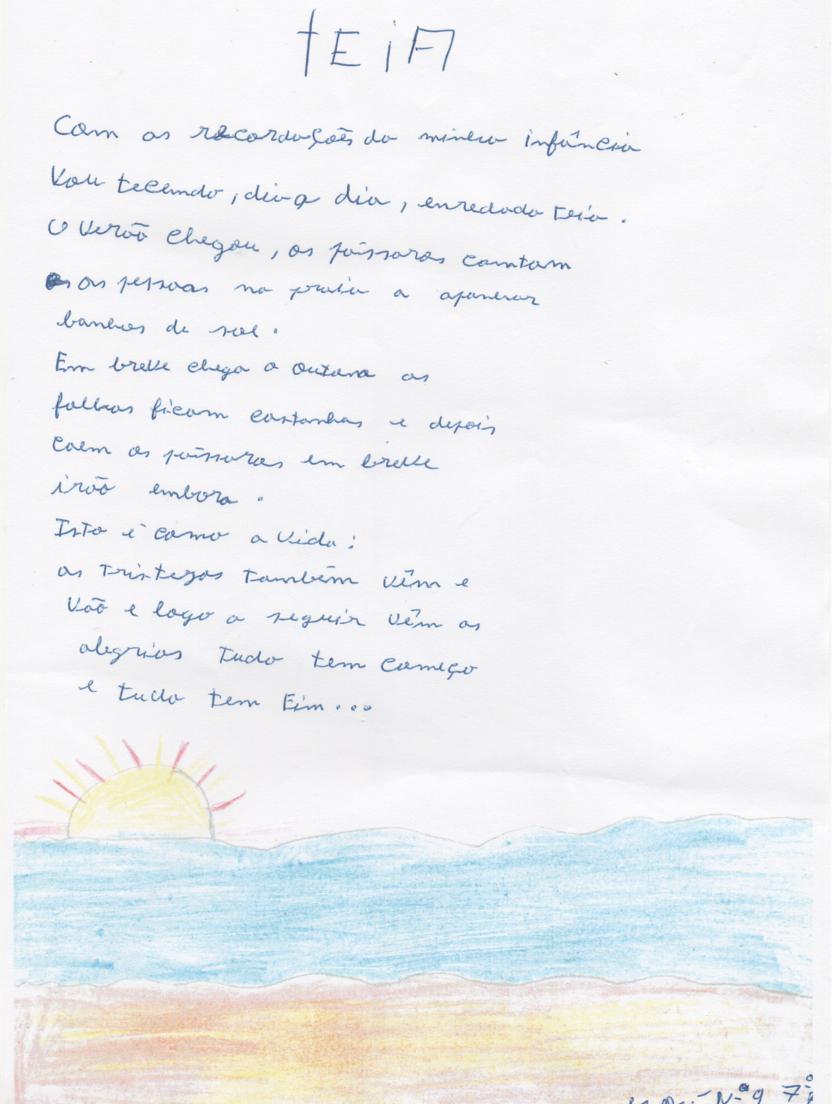 tEiA
Com as recordações da minha infância
Vou tecendo, dia a dia, enredada teia.
O verão chegou, os pássaros cantam
as pessoas na praia a apanhar
banhos de sol.
Em breve chega o outono as
folhas ficam castanhas e depois
caem os pássaros em breve
irão embora.
Isto é como a vida:
as tristezas também vêm e
vão e logo a seguir vêm as
alegrias tudo tem começo
e tudo tem Fim...
Nº 9 7º